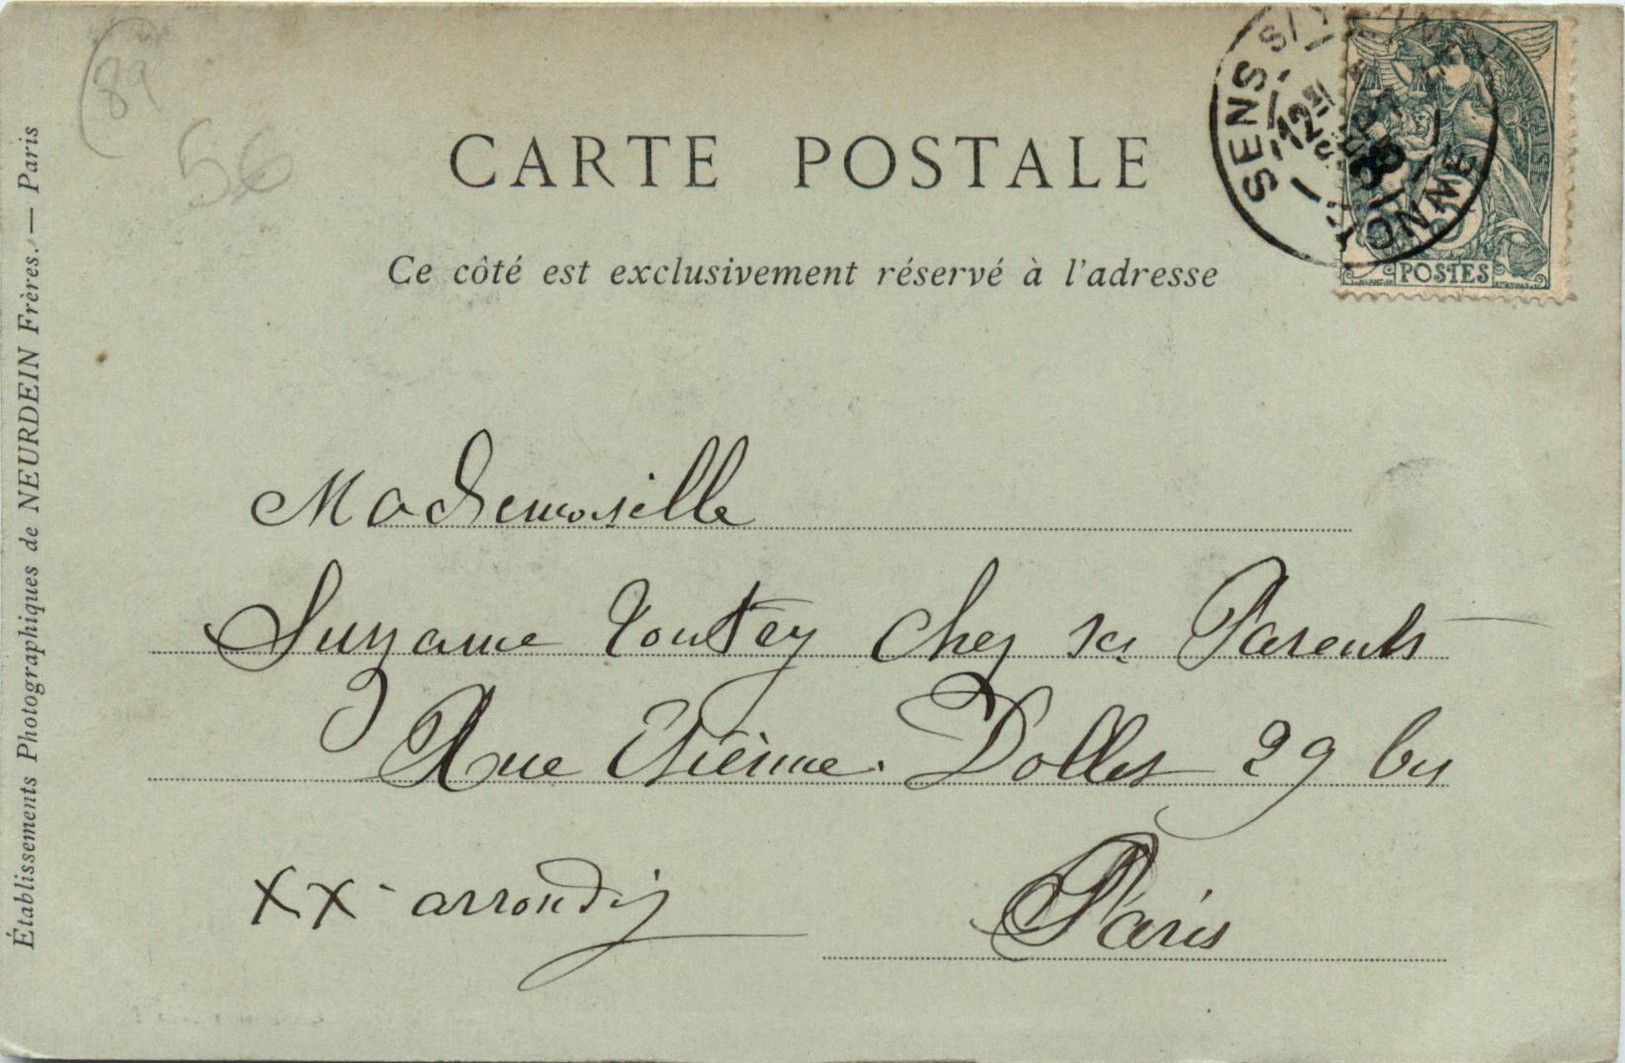 (89
56
CARTE POSTALE
Ce côté est exclusivement réservé à l'adresse
SENS S/ YONNE
POSTES
Établissements Photographiques de NEURDEIN Frères. — Paris
Mademoiselle
Suzanne Toutey Chez ses Parents
Rue Etienne Dollet 29 bis
XX arrondis
Paris